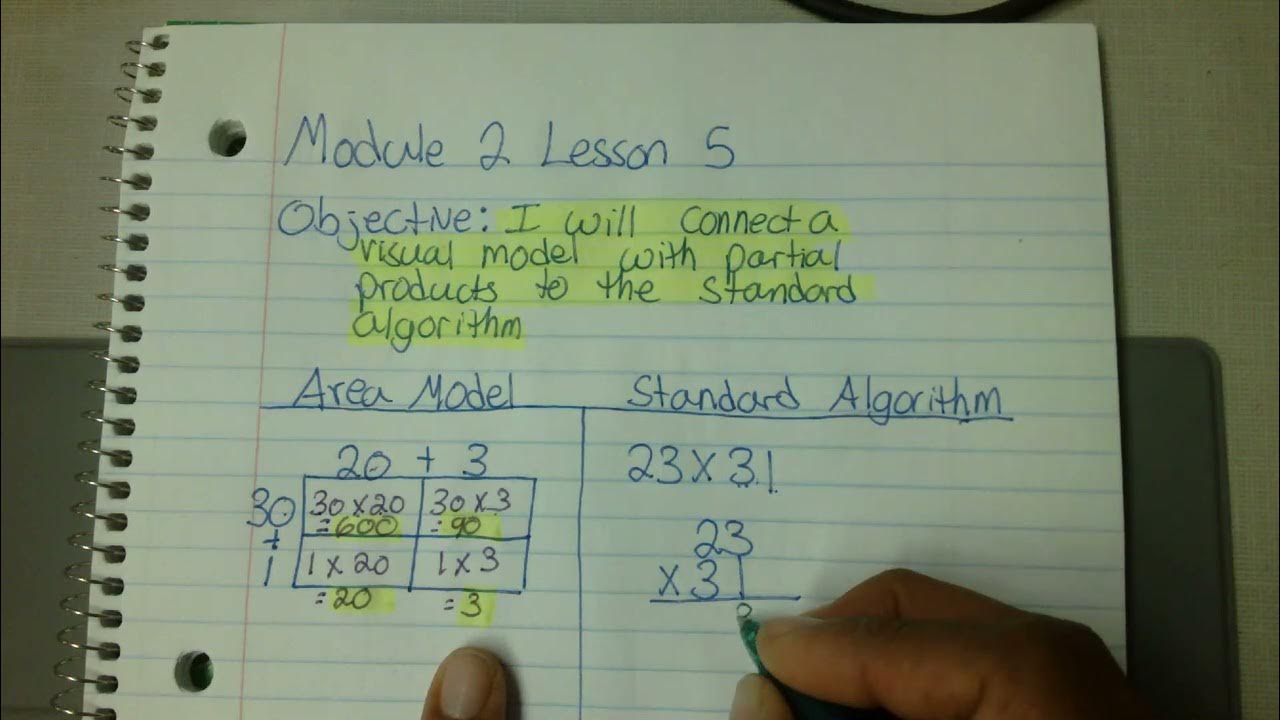 Module 2 Lesson 5
Objective: I will connect a
visual model with partial
products to the standard
algorithm
Area Model
20 + 3
30 30 x 20 30 x 3
= 600 = 90
+
1 1 x 20 1 x 3
= 20 = 3
Standard Algorithm
23 x 31
23
x 31